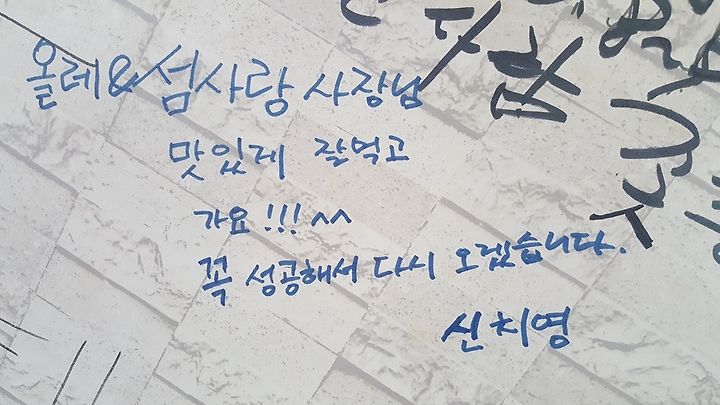 올레&섬사랑 사장님
맛있게 잘먹고
가요!!! ^^
꼭 성공해서 다시 오겠습니다.
신치영